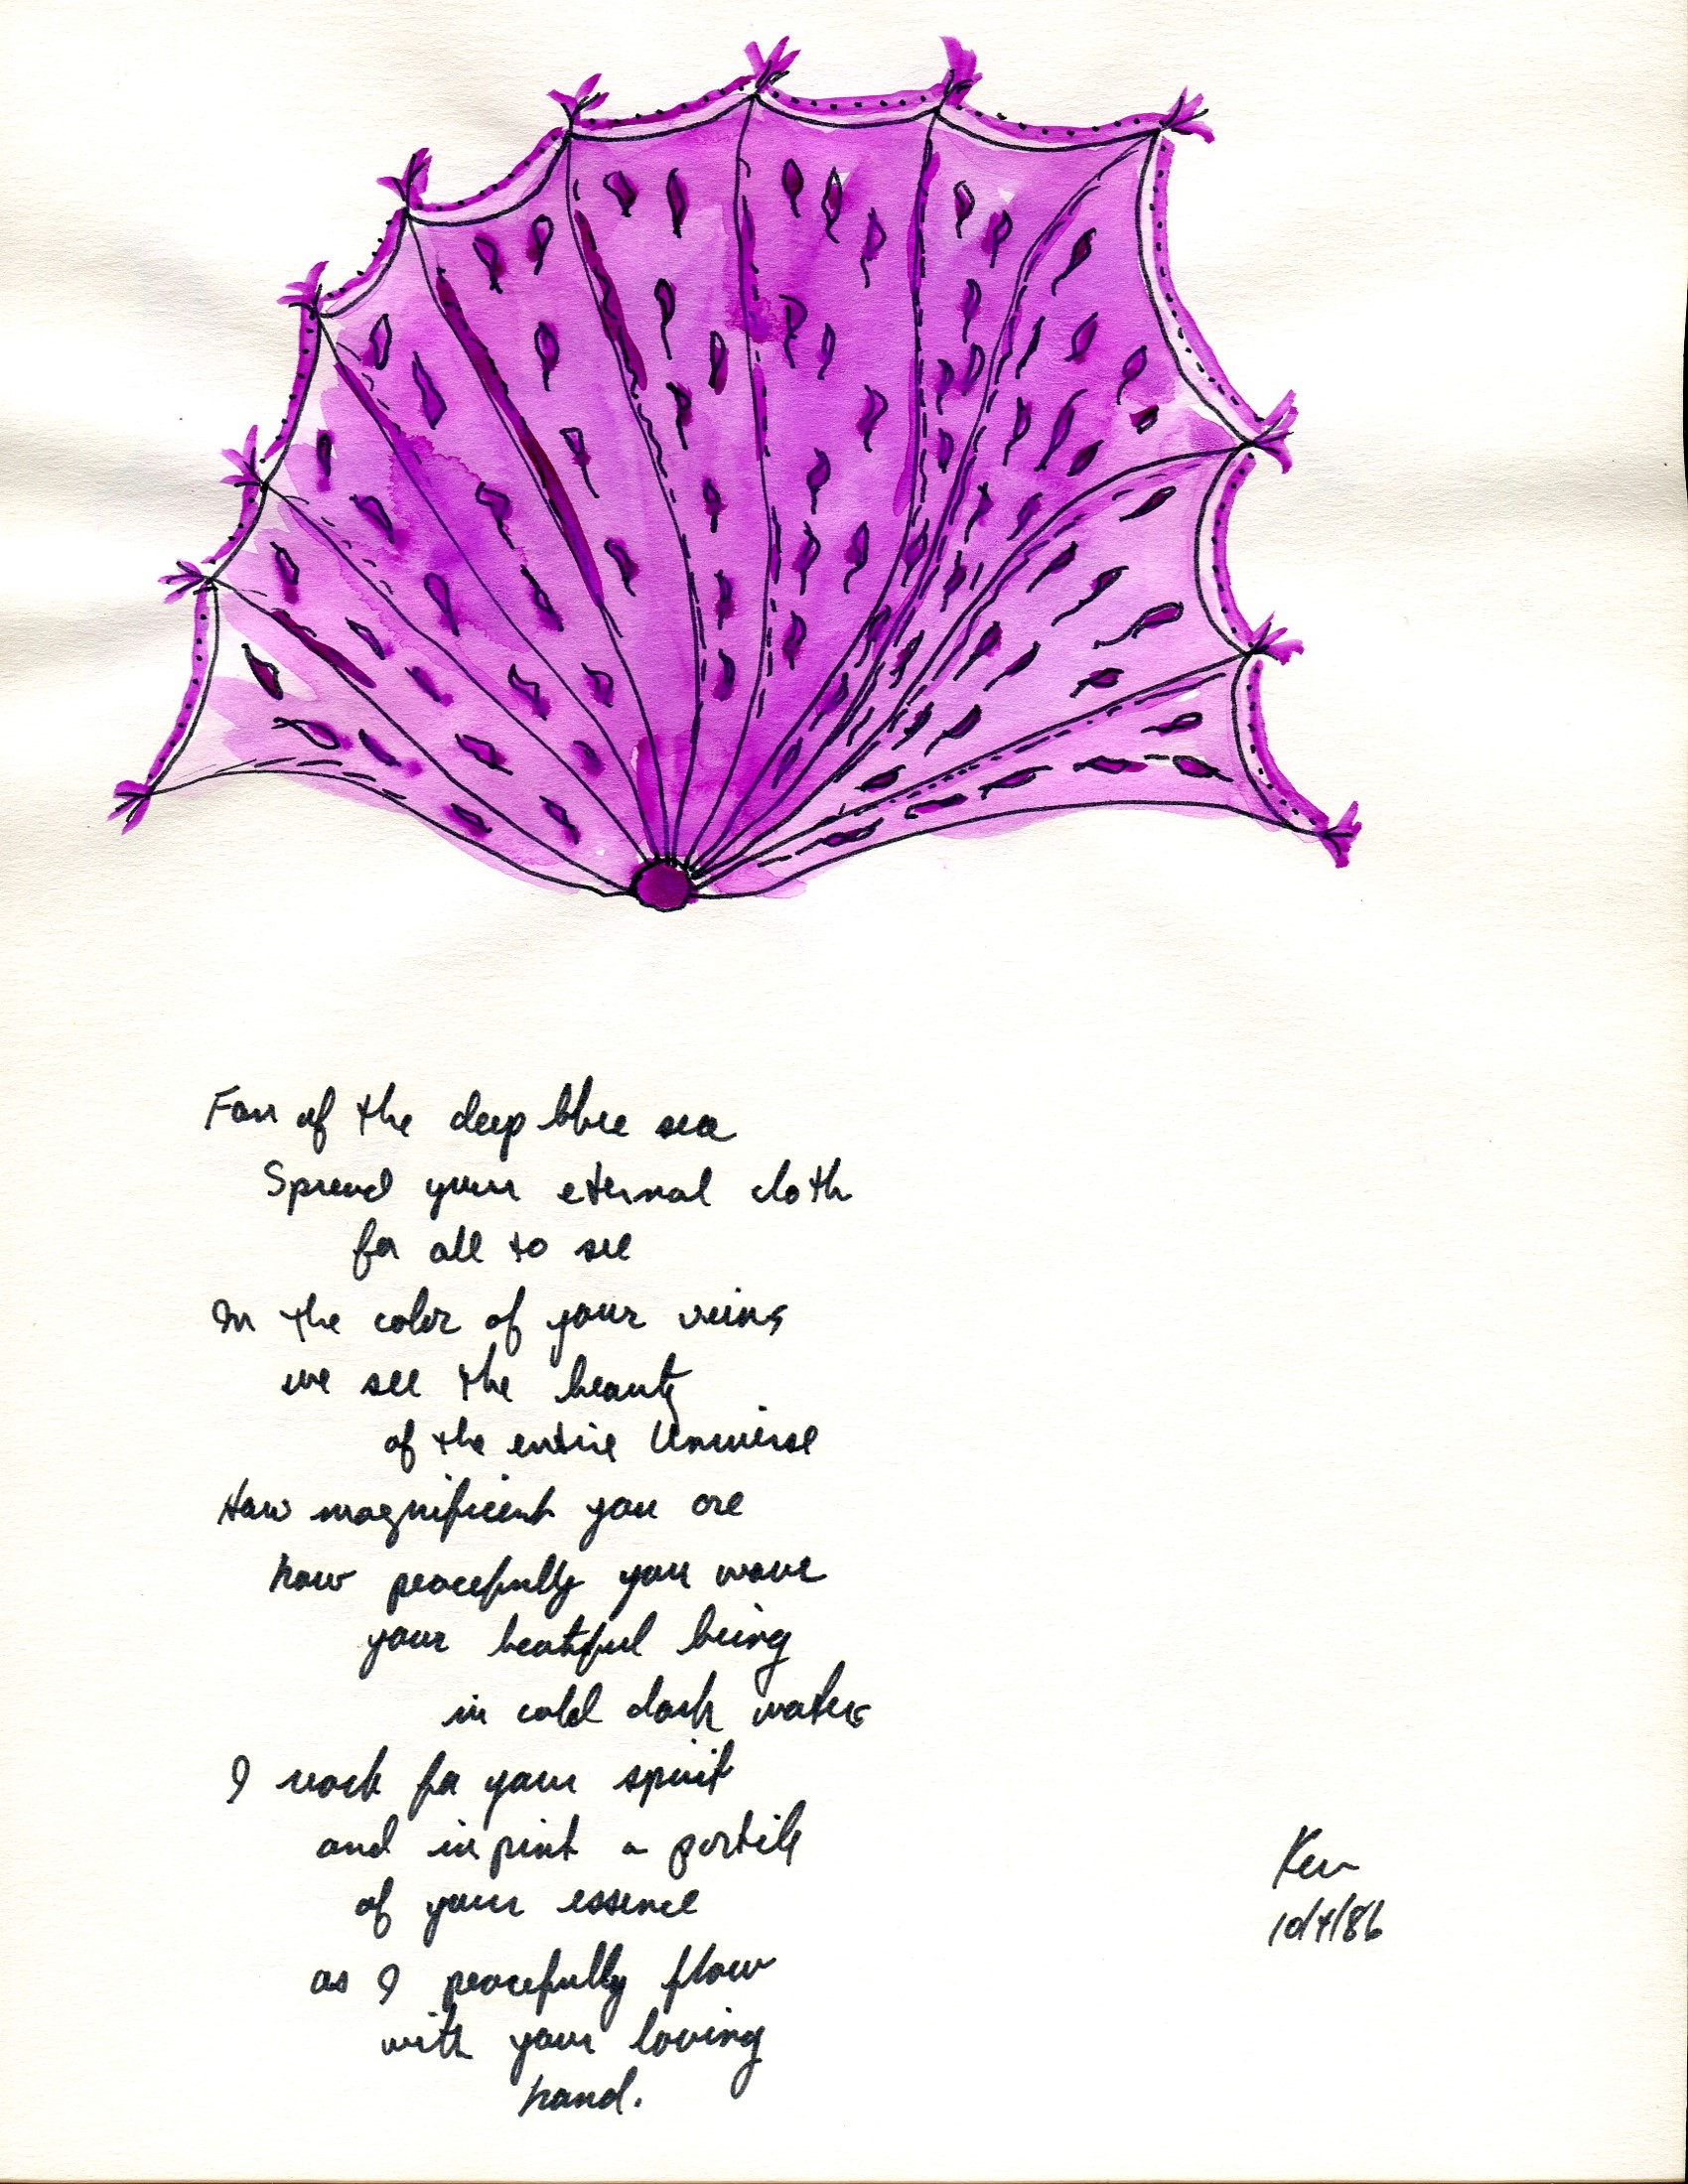 Fan of the deep blue sea
Spread your eternal cloth
for all to see
In the color of your veins
we see the beauty
of the entire Universe
How magnificent you are
how peacefully you wave
your beatiful being
in cold dark waters
I reach for your spirit
and in print a
of your essence
as I peacefully flow
with your loving
hand.
Ken
10/4/86